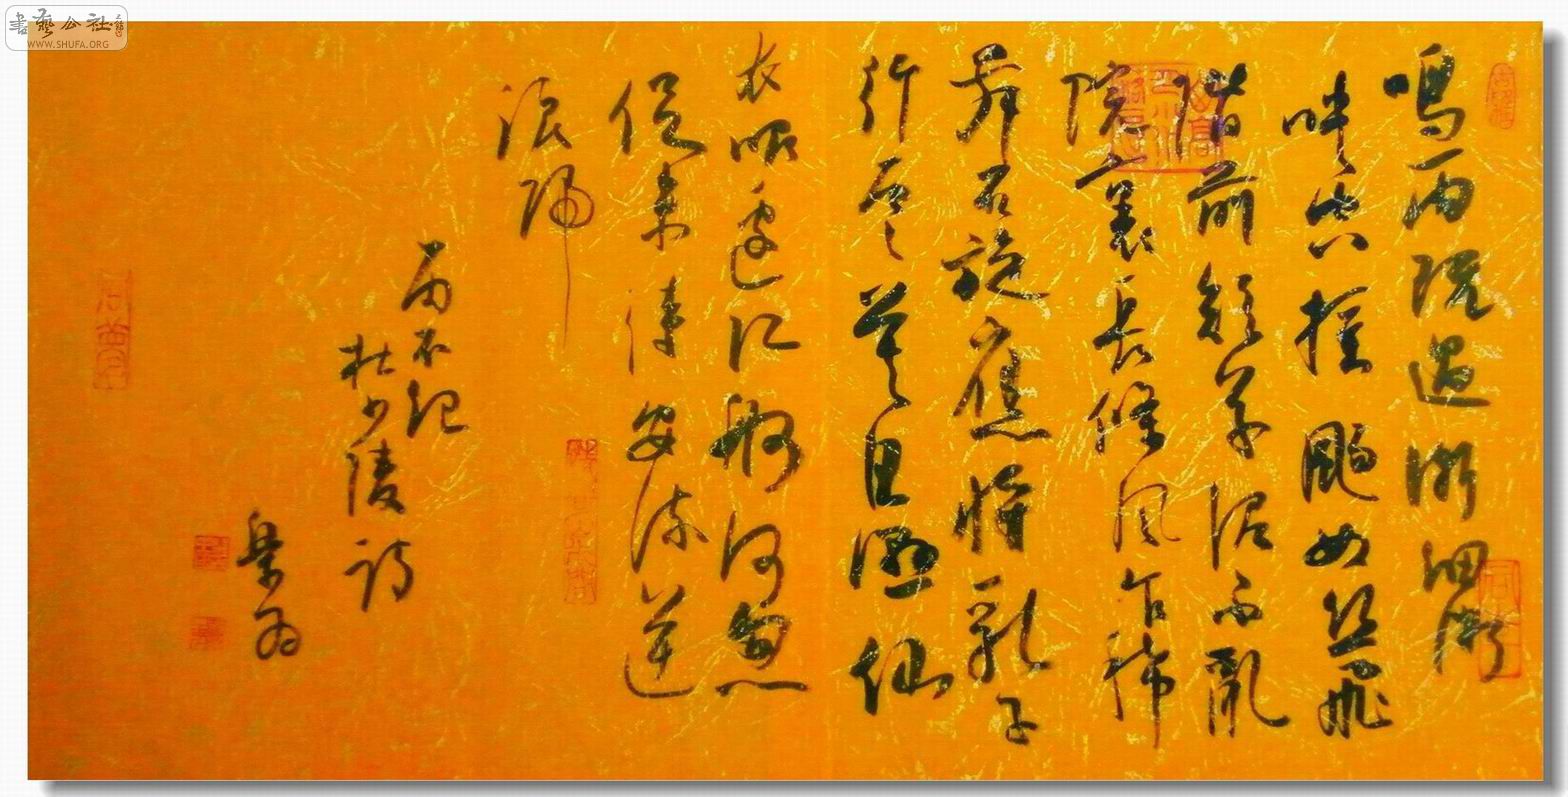 書藝公社
WWW.SHUFA.ORG
鳴雨既過漸細微
映空搖颺如絲飛
階前短草泥不亂
院裏長條風乍稀
舞石旋應將乳子
行雲莫自濕仙
衣眼邊江舸何怱
促未待安流逆
浪歸
雨不絕
杜少陵詩